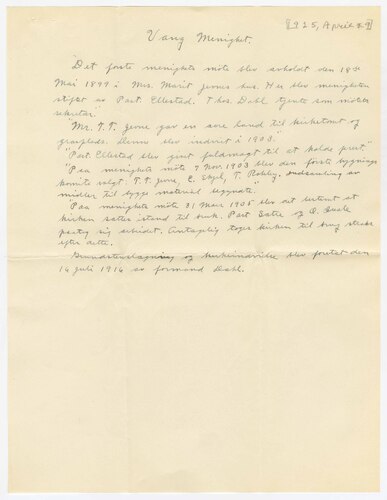 1925, April 29
Vang Menighet.
Det første menighets møte blev avholdt den 18de
Mai 1899 i Mrs. Marit Jevnes hus. Her blev menigheten
stiftet av Past. Ellestad. Thos. Dahl tjente som møtets
sekretær.
Mr. T. T. Jevne gav en acre land til kirketomt og
gravplads. Denne blev indviet i 1903."
"Past. Ellestad blev givet fuldmagt til at holde prest."
"Paa menighets møte 7 Nov. 1903 blev den første bygnings
komite valgt. T. T. Jevne, E. T.
midler til bygge material begynte."
"Paa menighets møte 31 Mars 1905 blev det bestemt at
kirken sættes istand til bruk. Past
paatog sig arbeidet. Antagelig toges kirken til brug straks
efter dette.
Grundstensnedlægning og kirkeindvielse blev foretat den
14 juli 1916 av formand Dahl.